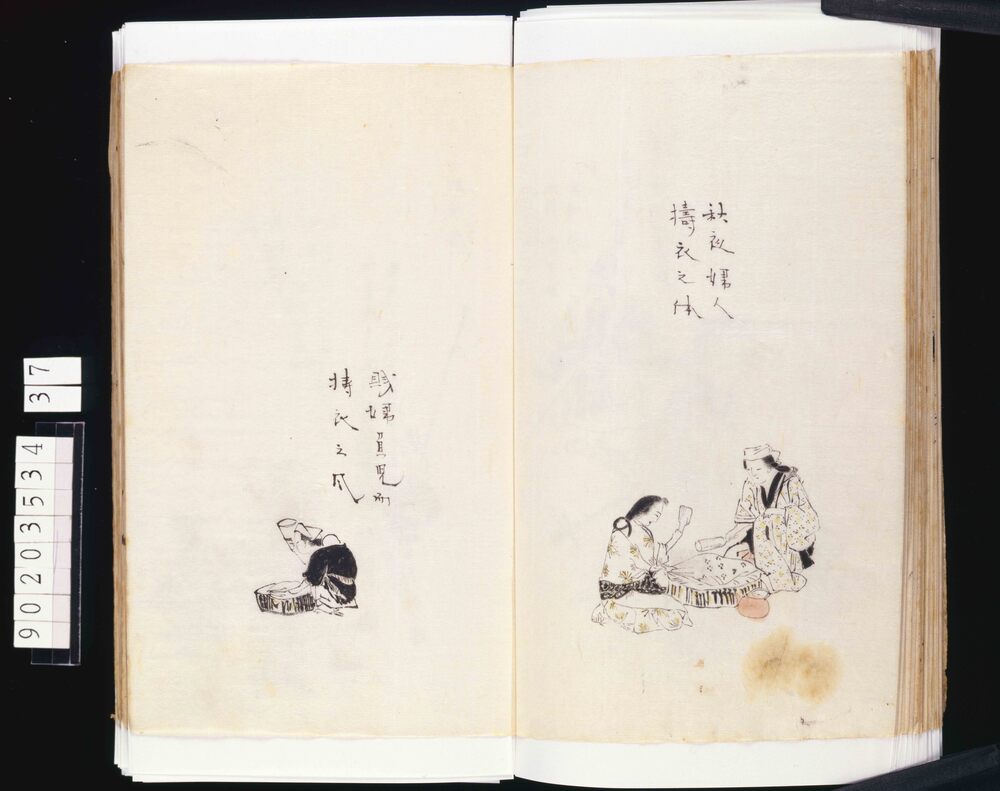 秋夜婦人
擣衣之体
賎婦負児而
擣衣之風
37
90203534